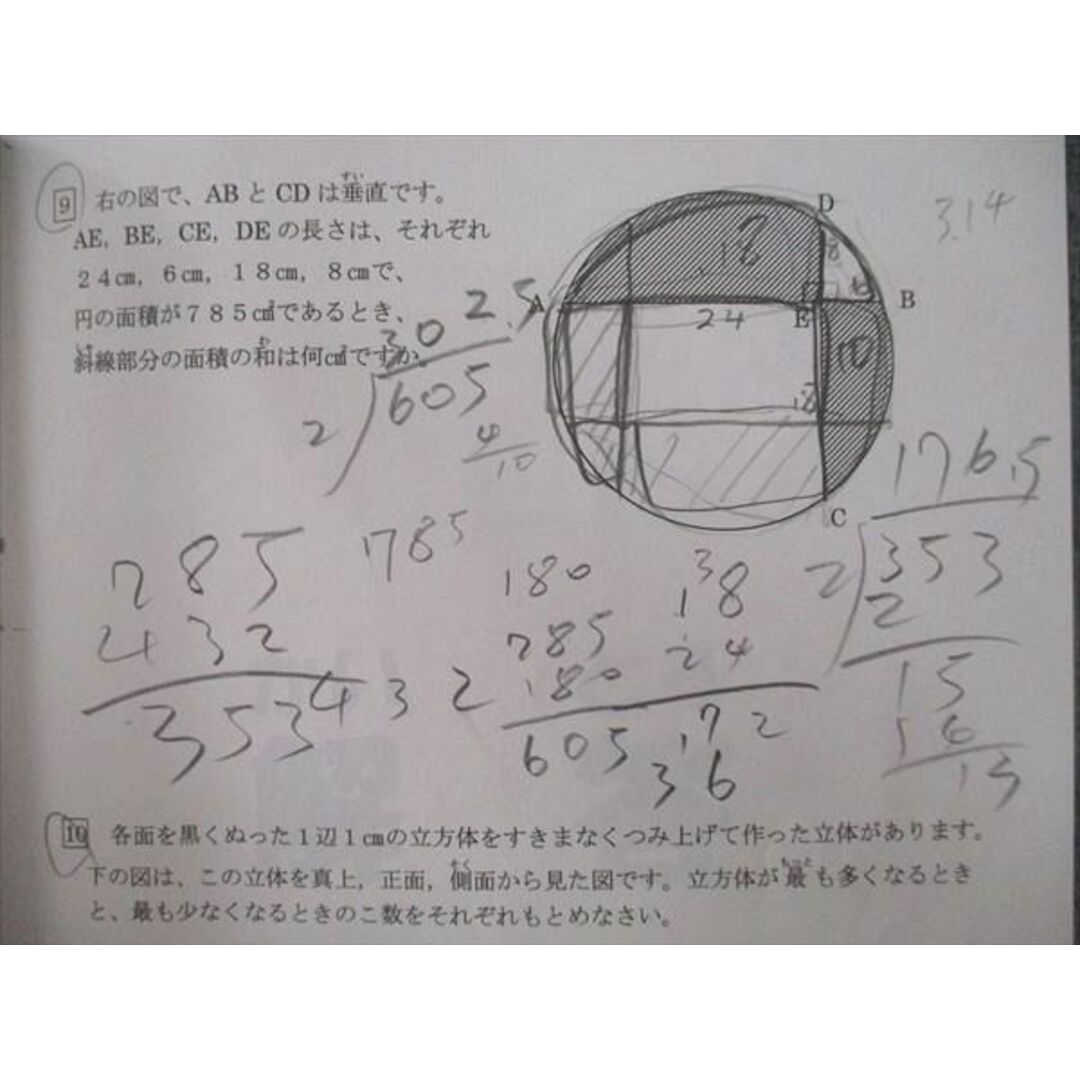 9 右の図で、ABとCDは垂直です。
すい
AE, BE, CE, DEの長さは、それぞれ
24㎝, 6㎝, 18㎝, 8㎝で、
円の面積が785㎠であるとき、
斜線部分の面積の和は何㎠ですか。
しゃ
わ
3.14
D
18
8
6
A
24
E
B
10
18
C
302.5
2)605
4
10
176.5
2)353
2
15
13
785
432
353
785
432
180
785
180
605
3
18
24
172
36
10 各面を黒くぬった1辺1㎝の立方体をすきまなくつみ上げて作った立体があります。
下の図は、この立体を真上, 正面, 側面から見た図です。立方体が最も多くなるとき
そく
もっと
と、最も少なくなるときのこ数をそれぞれもとめなさい。